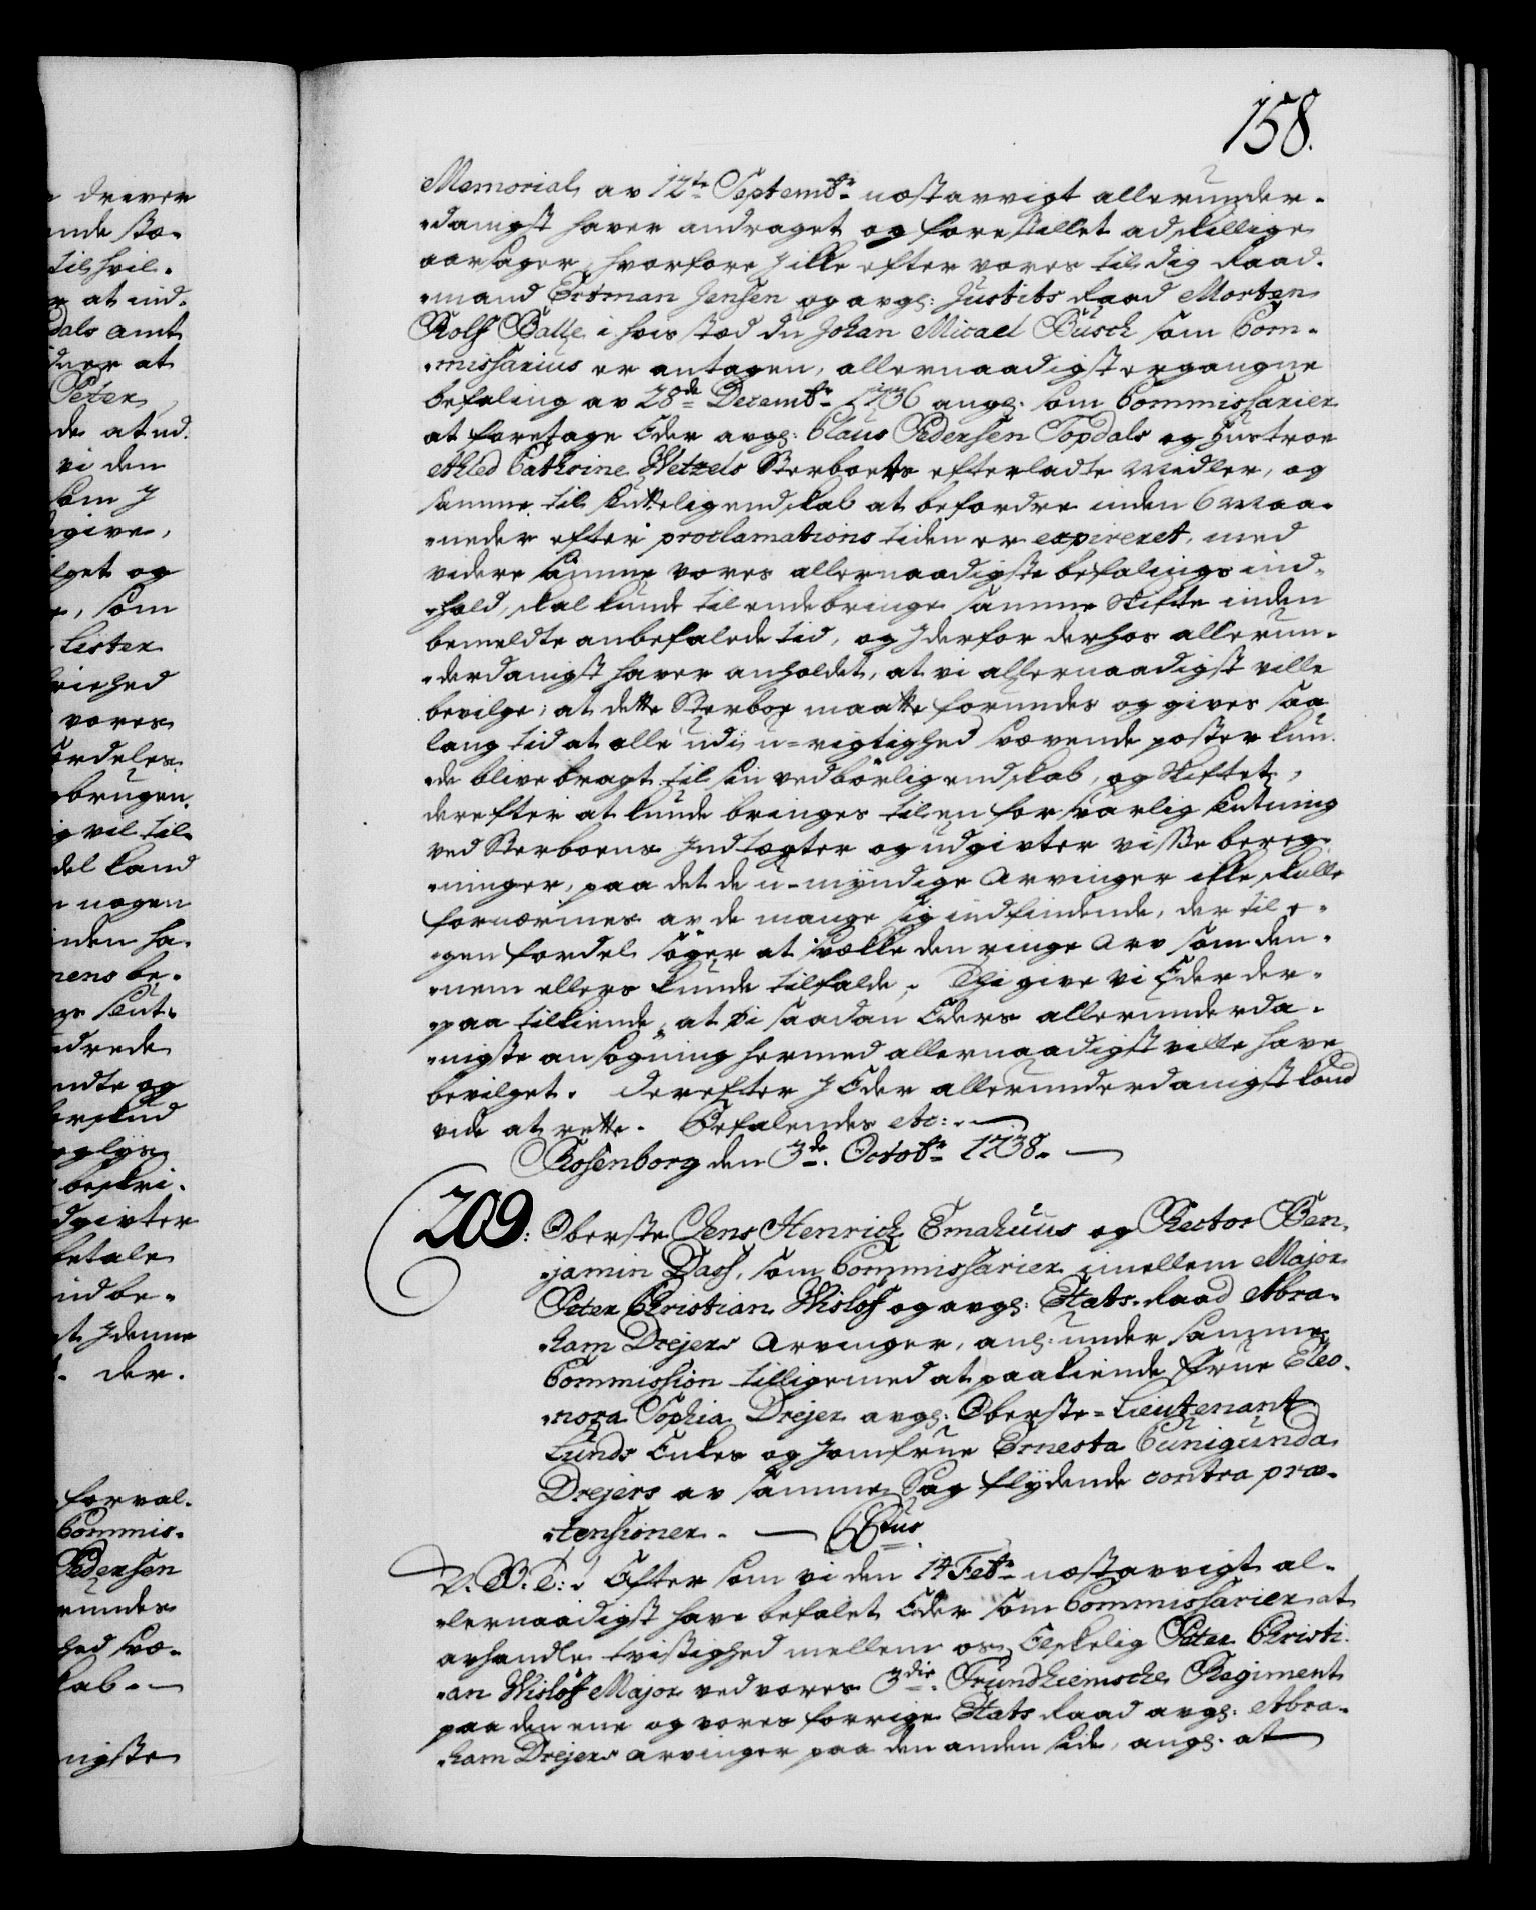 158.
Memorial av 12te Septembr næstavvigt allerunder-
-danigst haver andraget og forestillet adskillige
aarsager, hvorfore I ikke efter vores til dig Raad-
-mand Tritman Jensen og avgl: Justits Raad Morten
Rolf Balle i hvis stæd du Johan Micael Busch som Com-
-missarius er antagen, allernaadigst ergangne
befaling av 28de Decembr 1736 angl. som Commissarier
at foretage Eder avgl: Claus Pedersen Topdals og Hustroe
Ahled Cathrine Wetzels Sterboets efterladte Midler, og
samme til Rigtelig endskab at befordre inden 6 Maa-
-neder efter proclamations tiden er expireret, med
videre samme vores allernaadigste befalings ind-
-hold, skal kunde til ende bringe samme Skifte inden
bemeldte anbefalede tid, og I derfor derhos allerun-
-derdanigst haver anholdet, at vi allernaadigst ville
bevilge, at dette Sterboe maatte forundes og gives saa
lang tid at alle udi u-rigtighed svævende poster kun-
-de blive bragt til sin vedbörlig endskab, og Skiftet
derefter at kunde bringes til en forsvarlig slutning
ved Sterboens Indtægter og udgivter visse bereg-
-ninger, paa det de u-myndige Arvinger ikke skulle
fornærmes av de mange sig indfindende, der til e-
-gen fordel söger at svække den ringe Arv som den-
-nem ellers kunde tilfalde. Thi give vi Eder der-
-paa tilkiende, at vi saadan Eders allerunderda-
-nigste ansögning hermed allernaadigst ville have
bevilget. Derefter I Eder allerunderdanigst kand
vide at rette. Befalendes etc:
Rosenborg den 3de. Octobr 1738.
209: Oberste Jens Henrich Emahuus og Rector Ben-
-jamin Dass, som Commissarier imellem Major
Peter Christian Wislöff og avgl: Etats-Raad Abra-
-ham Drejers Arvinger, anl: under samme
Commission tilligemed at paakiende Frue Eleo-
-nora Sophia Drejer avgl: Oberste-Lieutenant
Lunds Enkes og Jomfrue Ernesta Cunigunda
Drejers av samme Sag flydende contra præ-
-tensioner.
V. G. T: Efter som vi den 14 Febr næstavvigt al-
-lernaadigst have befalet Eder som Commissarier at
avhandle tvistighed mellem os Elskelig Peter Christi-
-an Wislöff Major ved vores 3die Trundhiemsche Regiment
paa den ene og vores forrige Etats Raad avgl: Abra-
-ham Drejers arvinger paa den anden side, angl. at